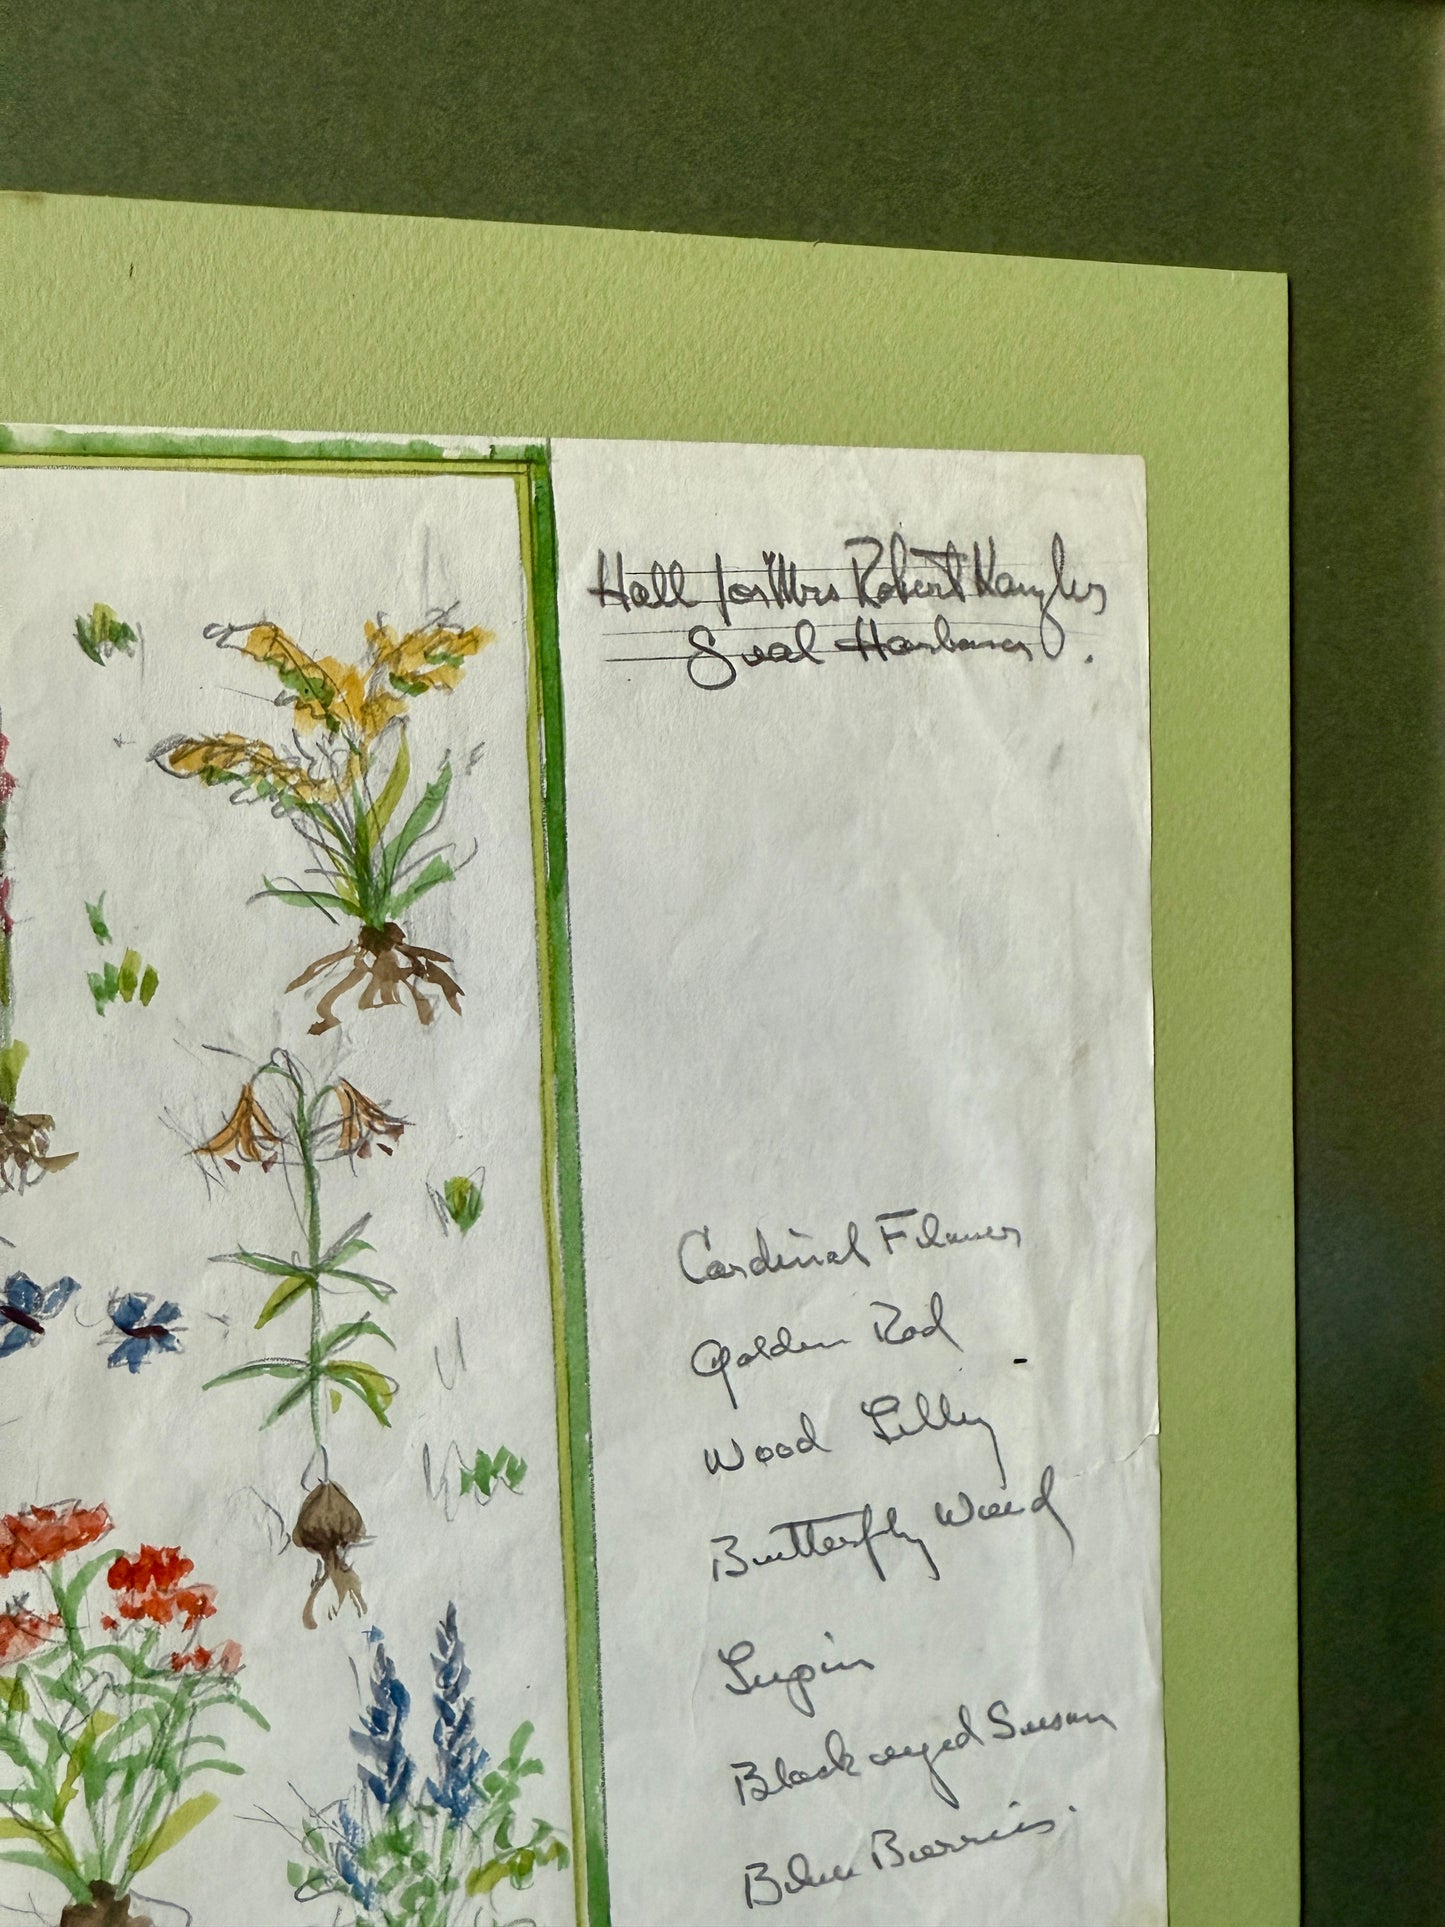 Hall for Mrs Robert Kanzler
Seal Harbour.
Cardinal Flower
Golden Rod
Wood Lilly
Butterfly Weed
Lupin
Black eyed Susan
Blue Berries